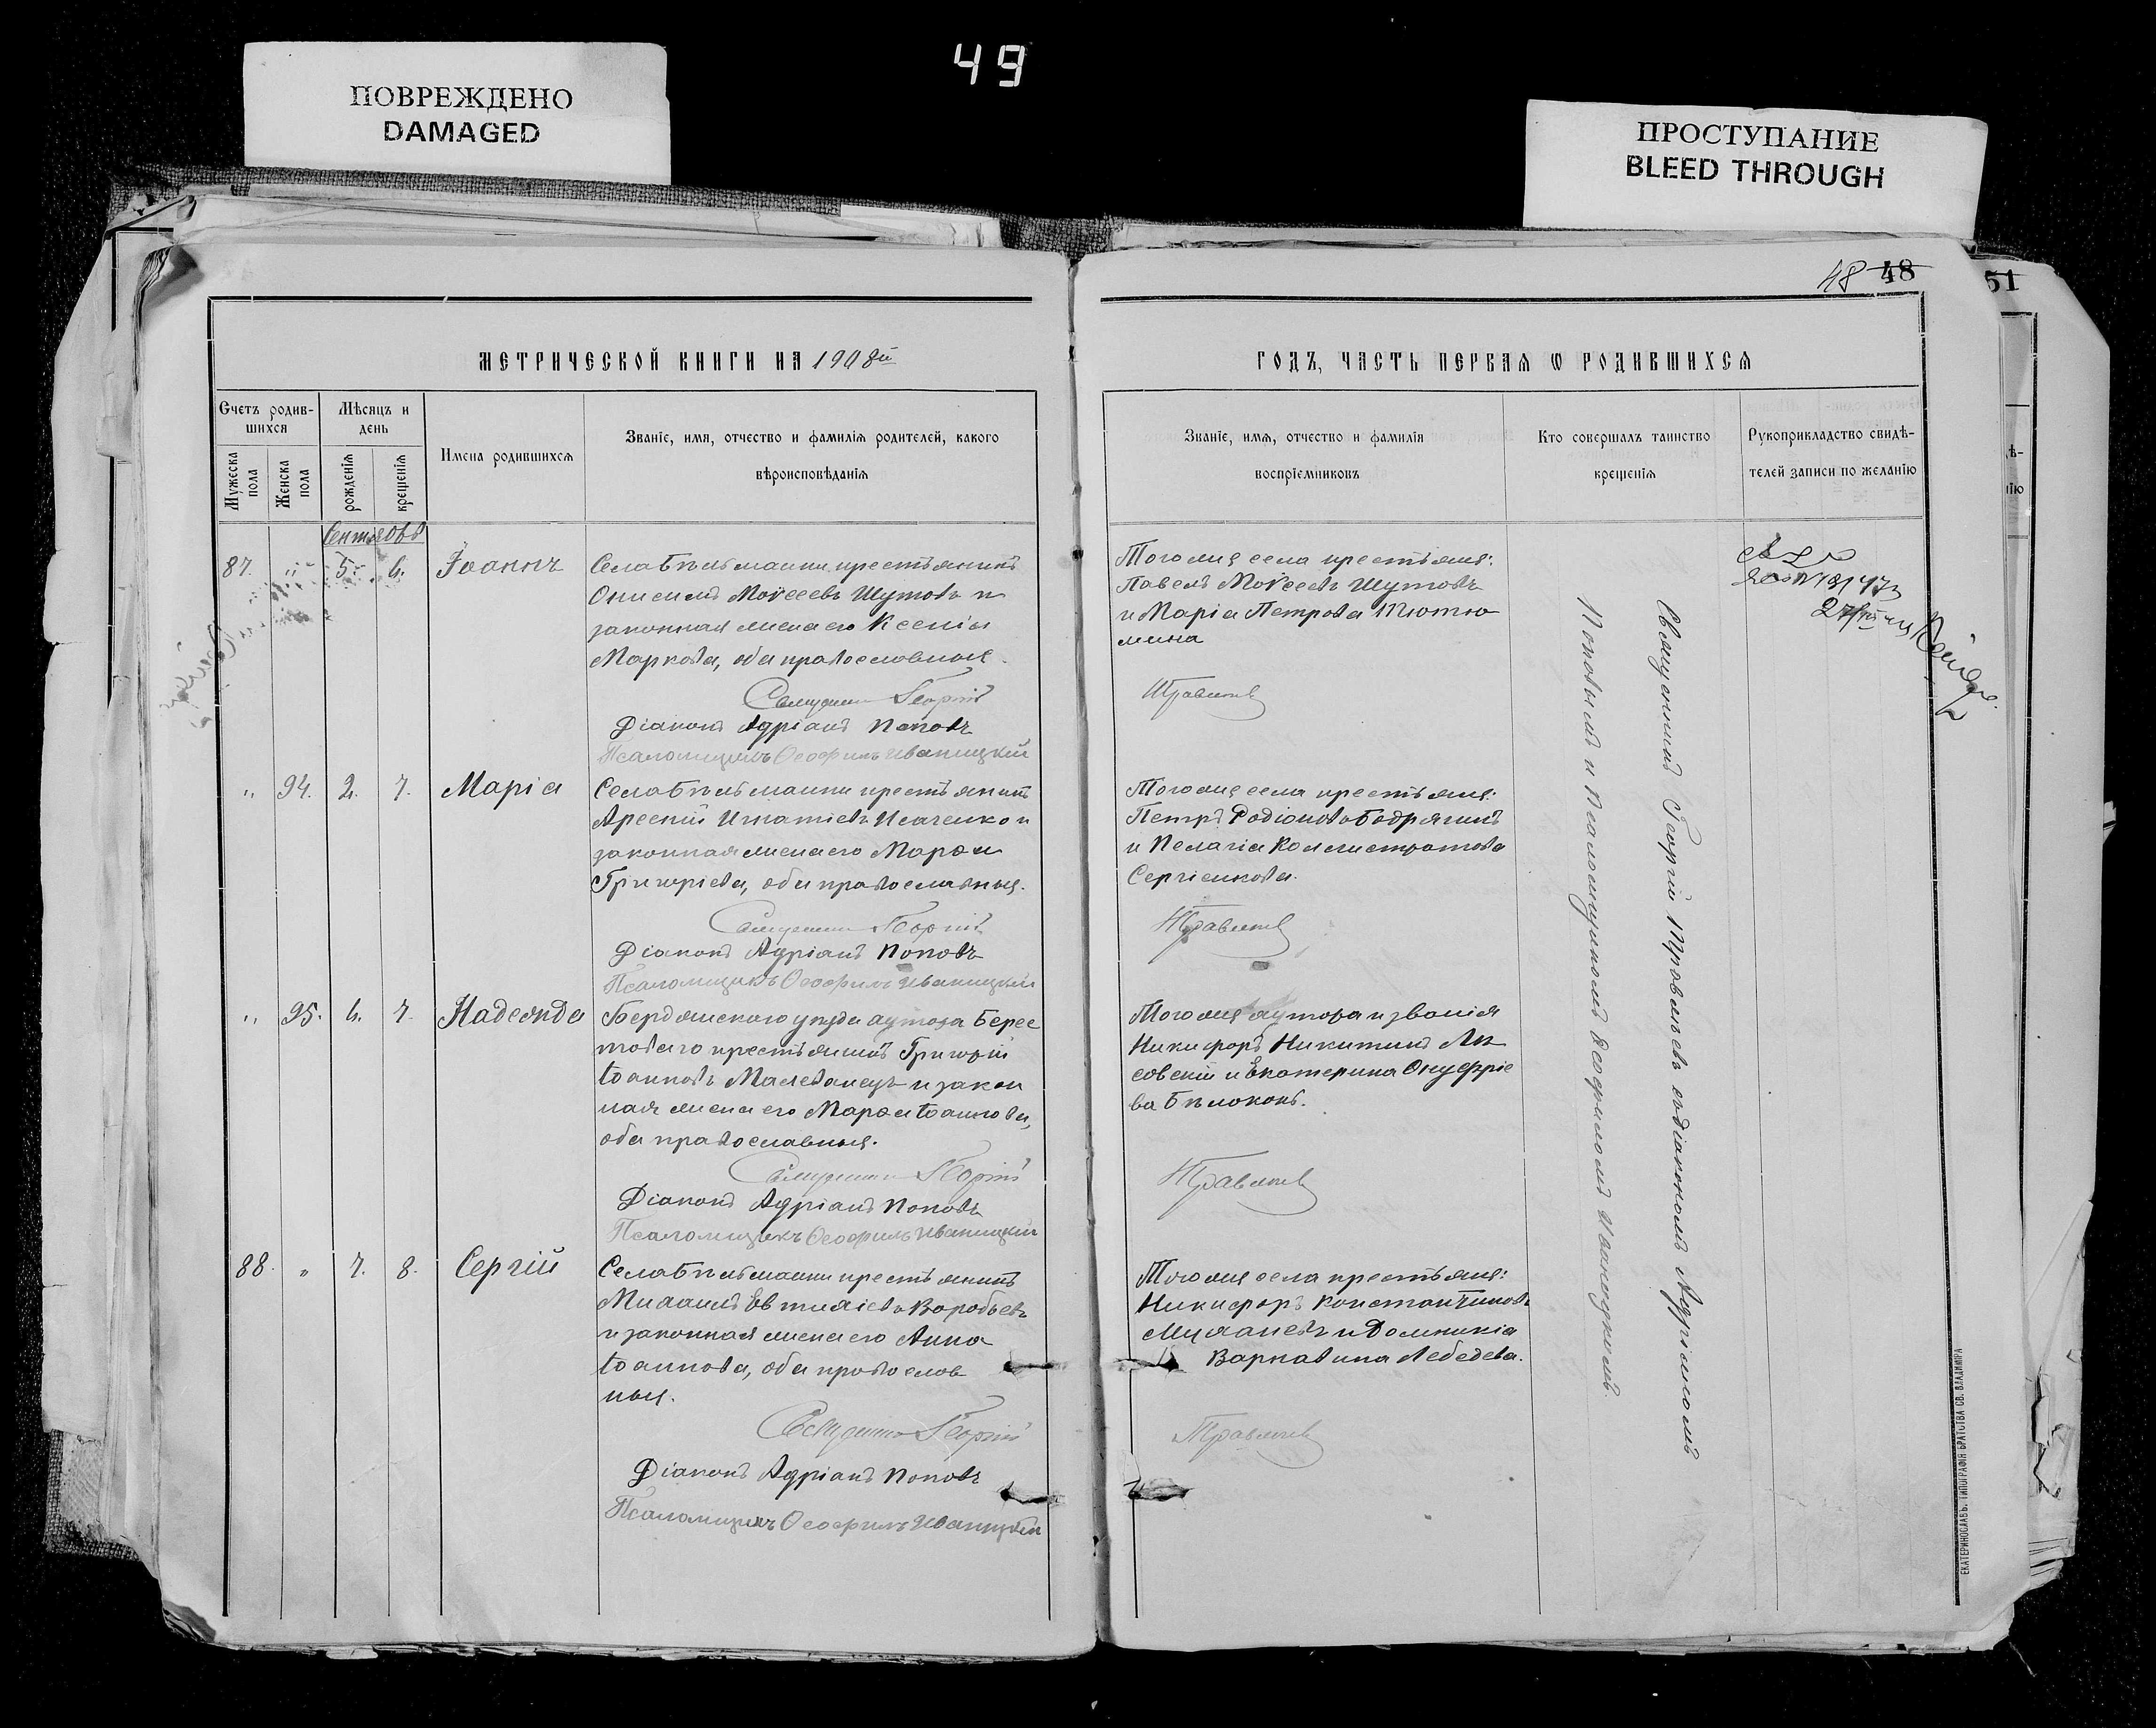 49
ПОВРЕЖДЕНО
DAMAGED
ПРОСТУПАНИЕ
BLEED THROUGH
48 48
51
МЕТРИЧЕСКОЙ КНИГИ НА 1908й
ГОДЪ, ЧАСТЬ ПЕРВАЯ Ѡ РОДИВШИХСЯ
Счетъ родив-
шихся
Мужеска
пола
Женска
пола
Мѣсяцъ и
день
рожденія
крещенія
Имена родившихся
Званіе, имя, отчество и фамилія родителей, какого
вѣроисповѣданія
Званіе, имя, отчество и фамилія
воспріемниковъ
Кто совершалъ таинство
крещенія
Рукоприкладство свидѣ-
телей записи по желанію
Сентябрь
87. " 5. 6. Іоаннъ
Села Бѣльманки крестьянинъ
Онисимъ Мойсеевъ Шутовъ и
законная жена его Ксенія
Маркова, оба православные.
Священникъ Георгій
Діаконъ Адріанъ Поповъ
Псаломщикъ Ѳеофилъ Иваницкій
Того же села крестьяне:
Павелъ Мойсеевъ Шутовъ
и Марія Петрова Тютю
мина
Травлевъ
" 94. 2. 7. Марія
Села Бѣльманки крестьянинъ
Арсеній Игнатіевъ Исаченко и
законная жена его Марѳа
Григоріева, оба православные.
Священникъ Георгій
Діаконъ Адріанъ Поповъ
Псаломщикъ Ѳеофилъ Иваницкій
Того же села крестьяне:
Петръ Родіоновъ Бодрягинъ
и Пелагія Каллистратова
Сергіенкова.
Травлевъ
" 95. 6. 7. Надежда
Бердянскаго уѣзда хутора Берес
товаго крестьянинъ Григорій
Іоанновъ Малеванецъ и закон
ная жена его Марѳа Іоаннова,
оба православные.
Священникъ Георгій
Діаконъ Адріанъ Поповъ
Псаломщикъ Ѳеофилъ Иваницкій
Того же хутора и званія
Никифоръ Никитинъ Ля
совскій и Екатерина Онуфріе
ва Бѣлоконь.
Травлевъ
88. " 7. 8. Сергій
Села Бѣльманки крестьянинъ
Михаилъ Евтихіевъ Воробьевъ
и законная жена его Анна
Іоаннова, оба православ
ные.
Священникъ Георгій
Діаконъ Адріанъ Поповъ
Псаломщикъ Ѳеофилъ Иваницкій
Того же села крестьяне:
Никифоръ Константиновъ
и Домникія
Варнавина Лебедева.
Травлевъ
Священникъ Георгій Травлевъ съ діакономъ Адріаномъ
Поповымъ и Псаломщикомъ Ѳеофиломъ Иваницкимъ.
ЕКАТЕРИНОСЛАВЪ. ТИПОГРАФІЯ БРАТСТВА СВ. ВЛАДИМІРА